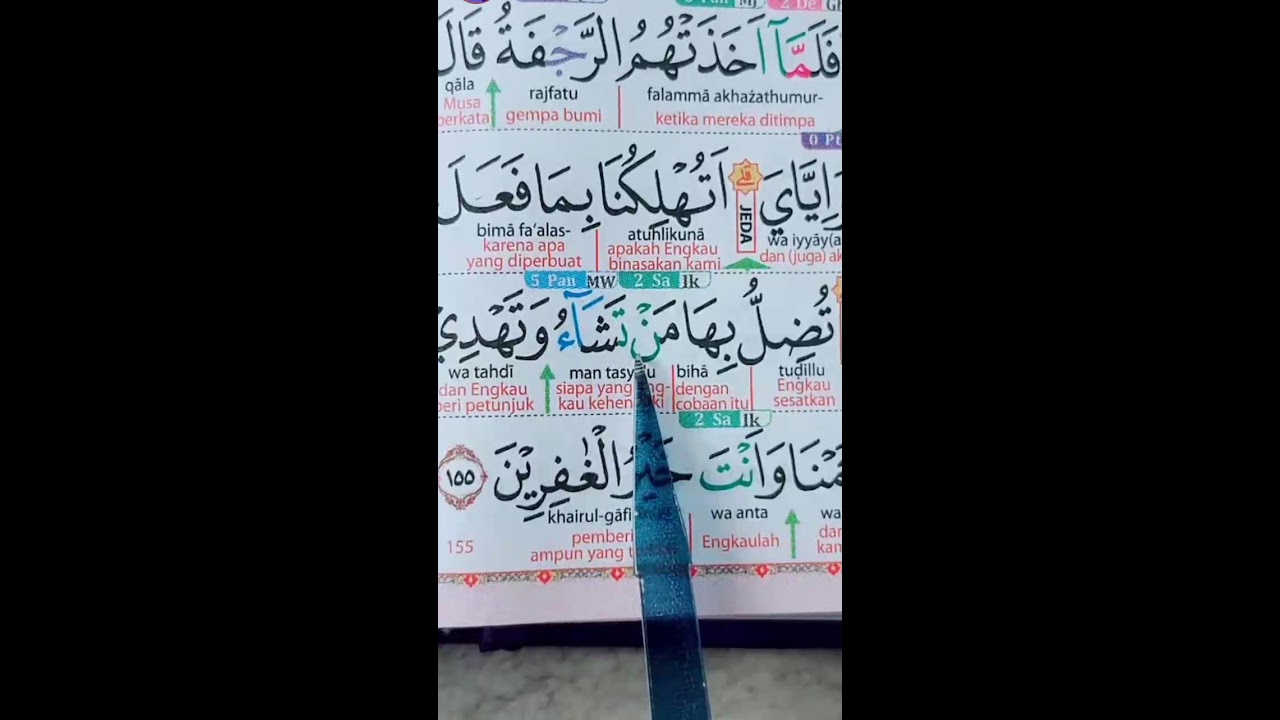 2 De Gh
فَلَمَّآ اَخَذَتْهُمُ الرَّجْفَةُ قَالَ
falammā akhażathumur- rajfatu qāla
ketika mereka ditimpa gempa bumi Musa berkata
0 Pt
اِيَّايَ ۗ اَتُهْلِكُنَا بِمَا فَعَلَ
JEDA
wa iyyāy(a atuhlikunā bimā fa‘alas-
dan (juga) ak apakah Engkau binasakan kami karena apa yang diperbuat
2 Sa Ik 5 Pan MW
تُضِلُّ بِهَا مَنْ تَشَاۤءُ وَتَهْدِيْ
tuḍillu bihā man wa tahdī
Engkau sesatkan dengan cobaan itu siapa yang kau dan Engkau beri petunjuk
2 Sa Ik
وَاَنْتَ خَيْرُ الْغٰفِرِيْنَ ١٥٥
wa anta khairul-gāfi
Engkaulah pemberi ampun yang
155